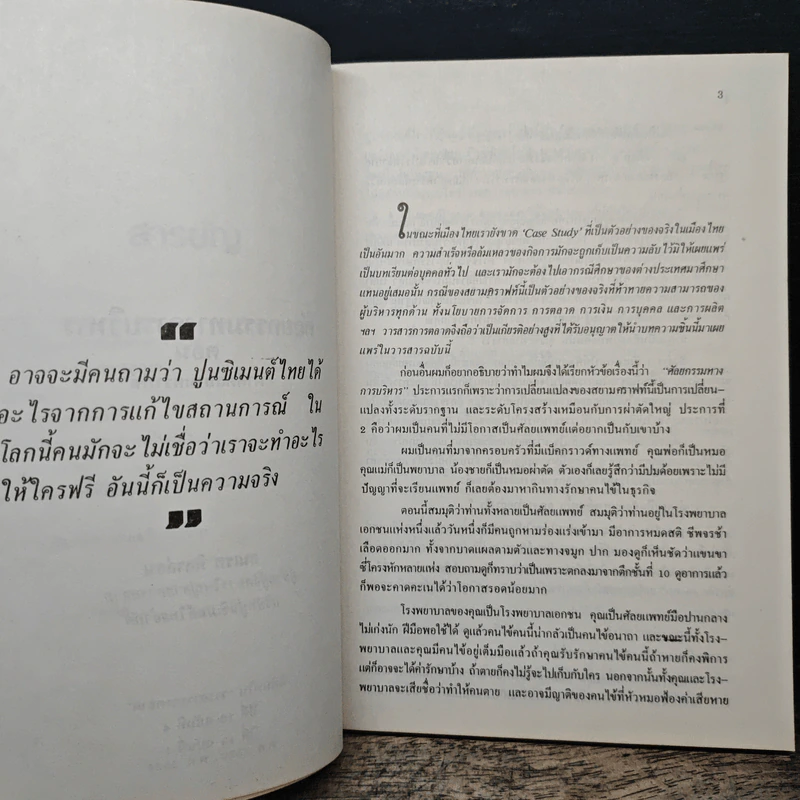 ❝
อาจจะมีคนถามว่า ปูนซิเมนต์ไทยได้
อะไรจากการแก้ไขสถานการณ์ ใน
โลกนี้คนมักจะไม่เชื่อว่าเราจะทำอะไร
ให้ใครฟรี อันนี้ก็เป็นความจริง
❞
3
ในขณะที่เมืองไทยเรายังขาด ‘Case Study’ ที่เป็นตัวอย่างของจริงในเมืองไทย
เป็นอันมาก ความสำเร็จหรือล้มเหลวของกิจการมักจะถูกเก็บเป็นความลับ ไว้มิให้เผยแพร่
เป็นบทเรียนต่อบุคคลทั่วไป และเรามักจะต้องไปเอากรณีศึกษาของต่างประเทศมาศึกษา
แทนอยู่เสมอนั้น กรณีของสยามคราฟท์นี้เป็นตัวอย่างของจริงที่ท้าทายความสามารถของ
ผู้บริหารทุกด้าน ทั้งนโยบายการจัดการ การตลาด การเงิน การบุคคล และการผลิต
ฯลฯ วารสารการตลาดจึงถือว่าเป็นเกียรติอย่างสูงที่ได้รับอนุญาตให้นำบทความชิ้นนี้มาเผย
แพร่ในวารสารฉบับนี้
ก่อนอื่นผมก็อยากอธิบายว่าทำไมผมจึงได้เรียกหัวข้อเรื่องนี้ว่า “ศัลยกรรมทาง
การบริหาร” ประการแรกก็เพราะว่าการเปลี่ยนแปลงของสยามคราฟท์นี้เป็นการเปลี่ยน–
แปลงทั้งระดับรากฐาน และระดับโครงสร้างเหมือนกับการผ่าตัดใหญ่ ประการที่
2 คือว่าผมเป็นคนที่ไม่มีโอกาสเป็นศัลยแพทย์แต่อยากเป็นกับเขาบ้าง
ผมเป็นคนที่มาจากครอบครัวที่มีแบ็คกราวด์ทางแพทย์ คุณพ่อก็เป็นหมอ
คุณแม่ก็เป็นพยาบาล น้องชายก็เป็นหมอผ่าตัด ตัวเองก็เลยรู้สึกว่ามีปมด้อยเพราะไม่มี
ปัญญาที่จะเรียนแพทย์ ก็เลยต้องมาหากินทางรักษาคนไข้ในธุรกิจ
ตอนนี้สมมุติว่าท่านทั้งหลายเป็นศัลยแพทย์ สมมุติว่าท่านอยู่ในโรงพยาบาล
เอกชนแห่งหนึ่งแล้ววันหนึ่งก็มีคนถูกหามร่องแร่งเข้ามา มีอาการหมดสติ ชีพจรช้า
เลือดออกมาก ทั้งจากบาดแผลตามตัวและทางจมูก ปาก มองดูก็เห็นชัดว่าแขนขา
ซี่โครงหักหลายแห่ง สอบถามดูก็ทราบว่าเป็นเพราะตกลงมาจากตึกชั้นที่ 10 ดูอาการแล้ว
ก็พอจะคาดคะเนได้ว่าโอกาสรอดน้อยมาก
โรงพยาบาลของคุณเป็นโรงพยาบาลเอกชน คุณเป็นศัลยแพทย์มือปานกลาง
ไม่เก่งนัก ฝีมือพอใช้ได้ ดูแล้วคนไข้คนนี้น่ากลัวเป็นคนไข้อนาถา และขณะนี้ทั้งโรง–
พยาบาลและคุณมีคนไข้อยู่เต็มมือแล้วถ้าคุณรับรักษาคนไข้คนนี้ถ้าหายก็คงพิการ
แต่ก็อาจจะได้ค่ารักษาบ้าง ถ้าตายก็คงไม่รู้จะไปเก็บกับใคร นอกจากนั้นทั้งคุณและโรง–
พยาบาลจะเสียชื่อว่าทำให้คนตาย และอาจมีญาติของคนไข้ที่หัวหมอฟ้องค่าเสียหาย